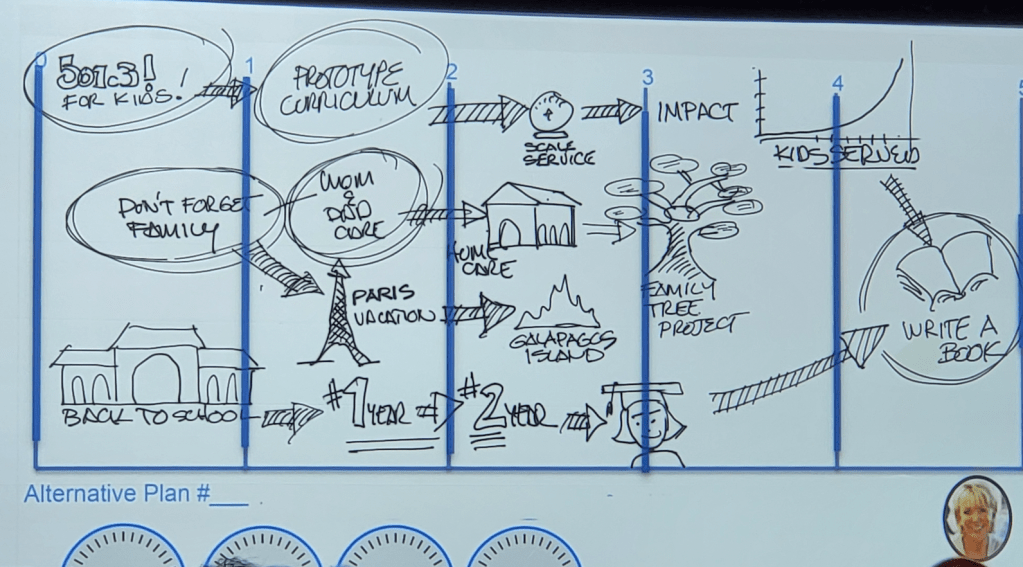 0
501c3!
FOR KIDS!
1
PROTOTYPE
CURRICULUM
2
SCALE
SERVICE
3
IMPACT
4
KIDS SERVED
5
DON'T FORGET
FAMILY
MOM
&
DAD
CARE
HOME
CARE
FAMILY
TREE
PROJECT
PARIS
VACATION
GALAPAGOS
ISLAND
WRITE A
BOOK
BACK TO SCHOOL
#1 YEAR
#2 YEAR
Alternative Plan #___